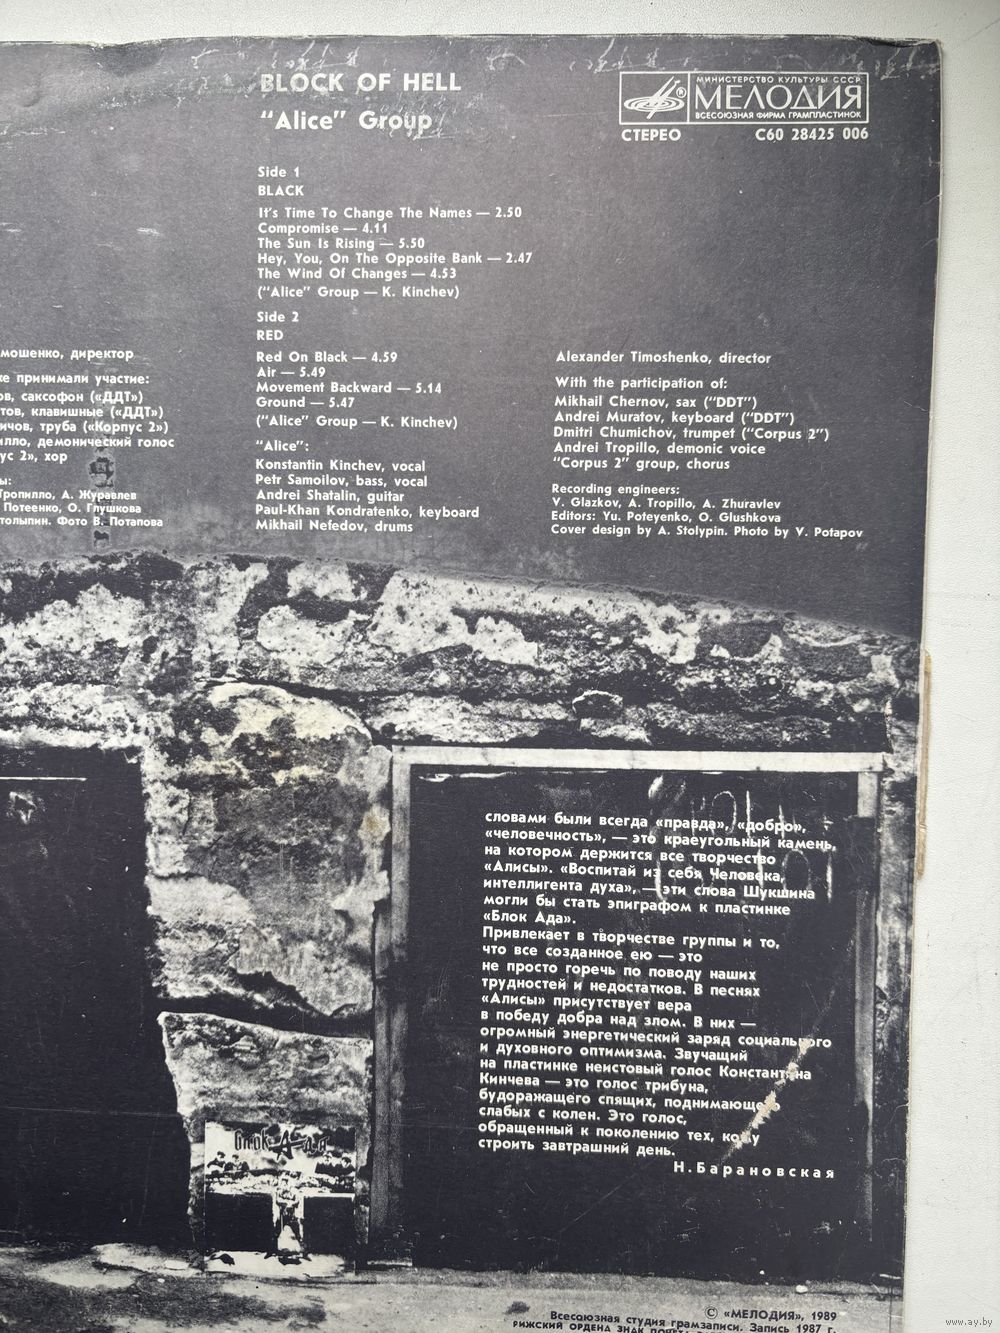 BLOCK OF HELL
"Alice" Group
МИНИСТЕРСТВО КУЛЬТУРЫ СССР
МЕЛОДИЯ
ВСЕСОЮЗНАЯ ФИРМА ГРАМПЛАСТИНОК
СТЕРЕО С60 28425 006
Side 1
BLACK
It's Time To Change The Names — 2.50
Compromise — 4.11
The Sun Is Rising — 5.50
Hey, You, On The Opposite Bank — 2.47
The Wind Of Changes — 4.53
("Alice" Group — K. Kinchev)
Side 2
RED
Red On Black — 4.59
Air — 5.49
Movement Backward — 5.14
Ground — 5.47
("Alice" Group — K. Kinchev)
"Alice":
Konstantin Kinchev, vocal
Petr Samoilov, bass, vocal
Andrei Shatalin, guitar
Paul-Khan Kondratenko, keyboard
Mikhail Nefedov, drums
мошенко, директор
принимали участие:
саксофон («ДДТ»)
тов, клавишные («ДДТ»)
ичов, труба («Корпус 2»)
илло, демонический голос
ус 2», хор
ы:
Тропилло, А. Журавлев
Потеенко, О. Глушкова
толыпин. Фото В. Потапова
Alexander Timoshenko, director
With the participation of:
Mikhail Chernov, sax ("DDT")
Andrei Muratov, keyboard ("DDT")
Dmitri Chumichov, trumpet ("Corpus 2")
Andrei Tropillo, demonic voice
"Corpus 2" group, chorus
Recording engineers:
V. Glazkov, A. Tropillo, A. Zhuravlev
Editors: Yu. Poteyenko, O. Glushkova
Cover design by A. Stolypin. Photo by V. Potapov
словами были всегда «правда», «добро»,
«человечность», — это краеугольный камень,
на котором держится все творчество
«Алисы». «Воспитай из себя Человека,
интеллигента духа», — эти слова Шукшина
могли бы стать эпиграфом к пластинке
«Блок Ада».
Привлекает в творчестве группы и то,
что все созданное ею — это
не просто горечь по поводу наших
трудностей и недостатков. В песнях
«Алисы» присутствует вера
в победу добра над злом. В них —
огромный энергетический заряд социального
и духовного оптимизма. Звучащий
на пластинке неистовый голос Константина
Кинчева — это голос трибуна,
будоражащего спящих, поднимающего
слабых с колен. Это голос,
обращенный к поколению тех, кому
строить завтрашний день.
Н. Барановская
блок А да
© «МЕЛОДИЯ», 1989
Всесоюзная студия грамзаписи. Запись 1987 г.
РИЖСКИЙ ОРДЕНА ЗНАК ПОЧЕТА
www.ay.by